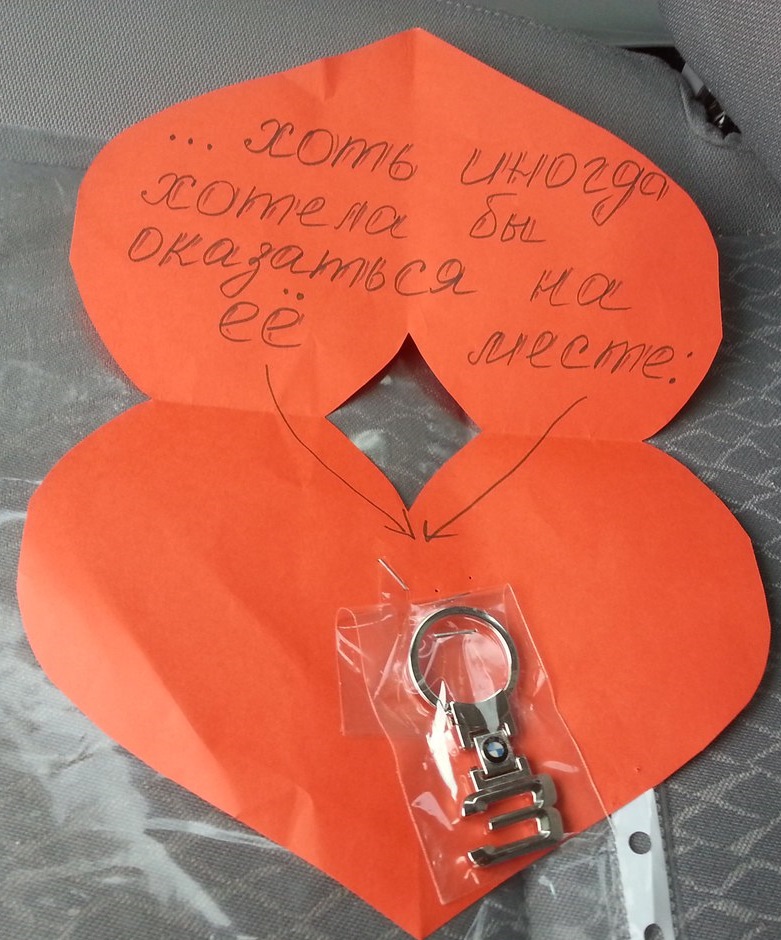 ... хоть иногда
хотела бы
оказаться на
её месте: